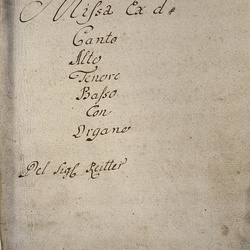 Missa Ex d♯
Canto
Alto
Tenore
Basso
Con
Organo
Del Sigl Reitter